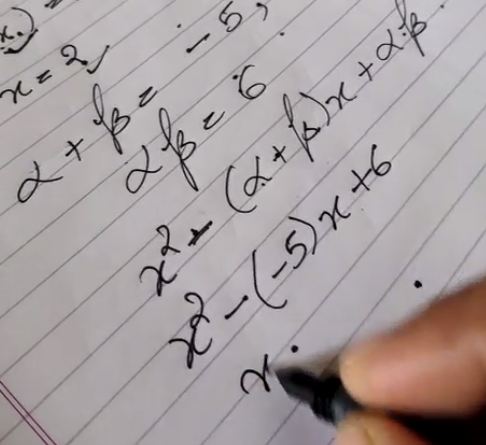 x = 2 ✓
α + β = -5,
αβ = 6
x² - (α + β)x + αβ
x² - (-5)x + 6
x